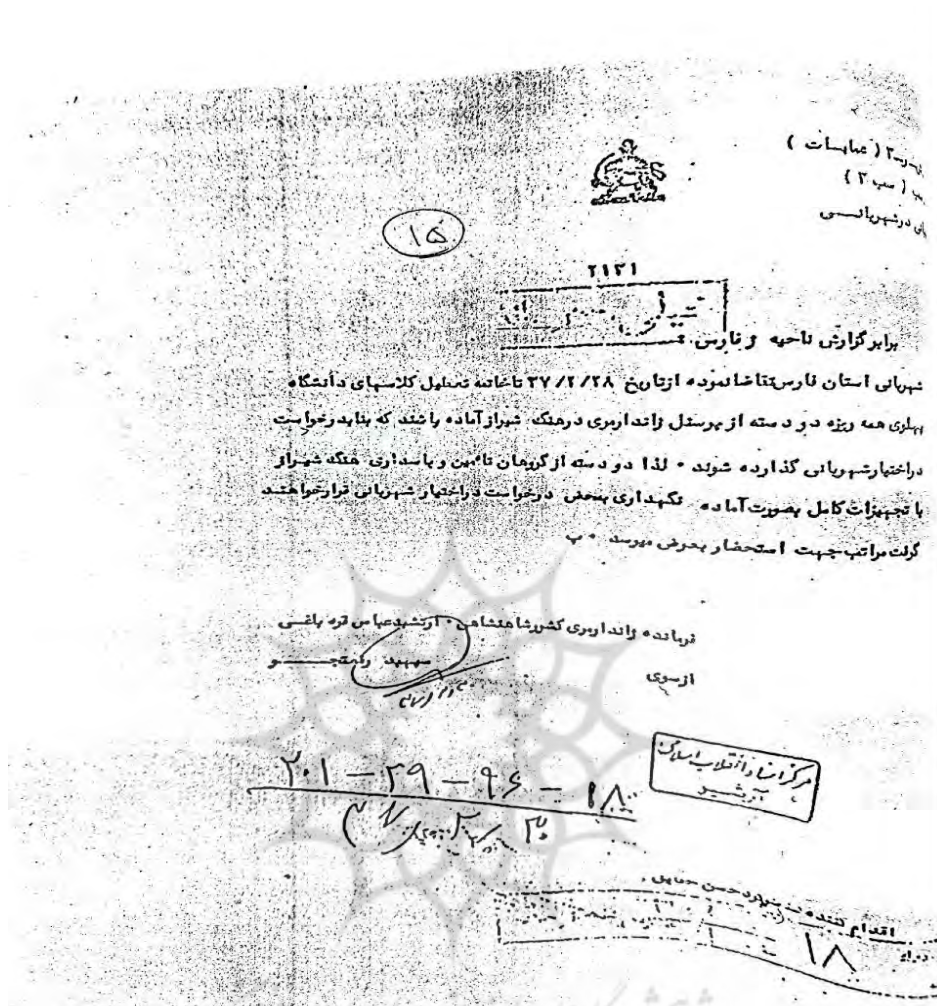 ( عملیات )
۱۵
۲۱۳۱
برابر گزارش ناحیه و فارس :
شهربانی استان فارس تقاضا نموده از تاریخ ۳۷/۲/۲۸ تا خاتمه تعطیل کلاسهای دانشگاه
پهلوی همه روزه دو دسته از پرسنل ژاندارمری در هنگ شیراز آماده باشند که بنا بدرخواست
در اختیار شهربانی گذارده شوند ۰ لذا دو دسته از گروهان تامین و پاسداری هنگ شیراز
با تجهیزات کامل بصورت آماده نگهداری بمحض درخواست در اختیار شهربانی قرار خواهند
گرفت مراتب جهت استحضار بعرض میرسد ۰ پ
فرمانده ژاندارمری کشور شاهنشاهی ۰ ارتشبد عباس قره باغی
از سوی سپهبد
۲۰۱ – ۲۹ – ۹۶ – ۱۸
مرکز اسناد انقلاب اسلامی
آرشیو
اقدام کننده
۱۸